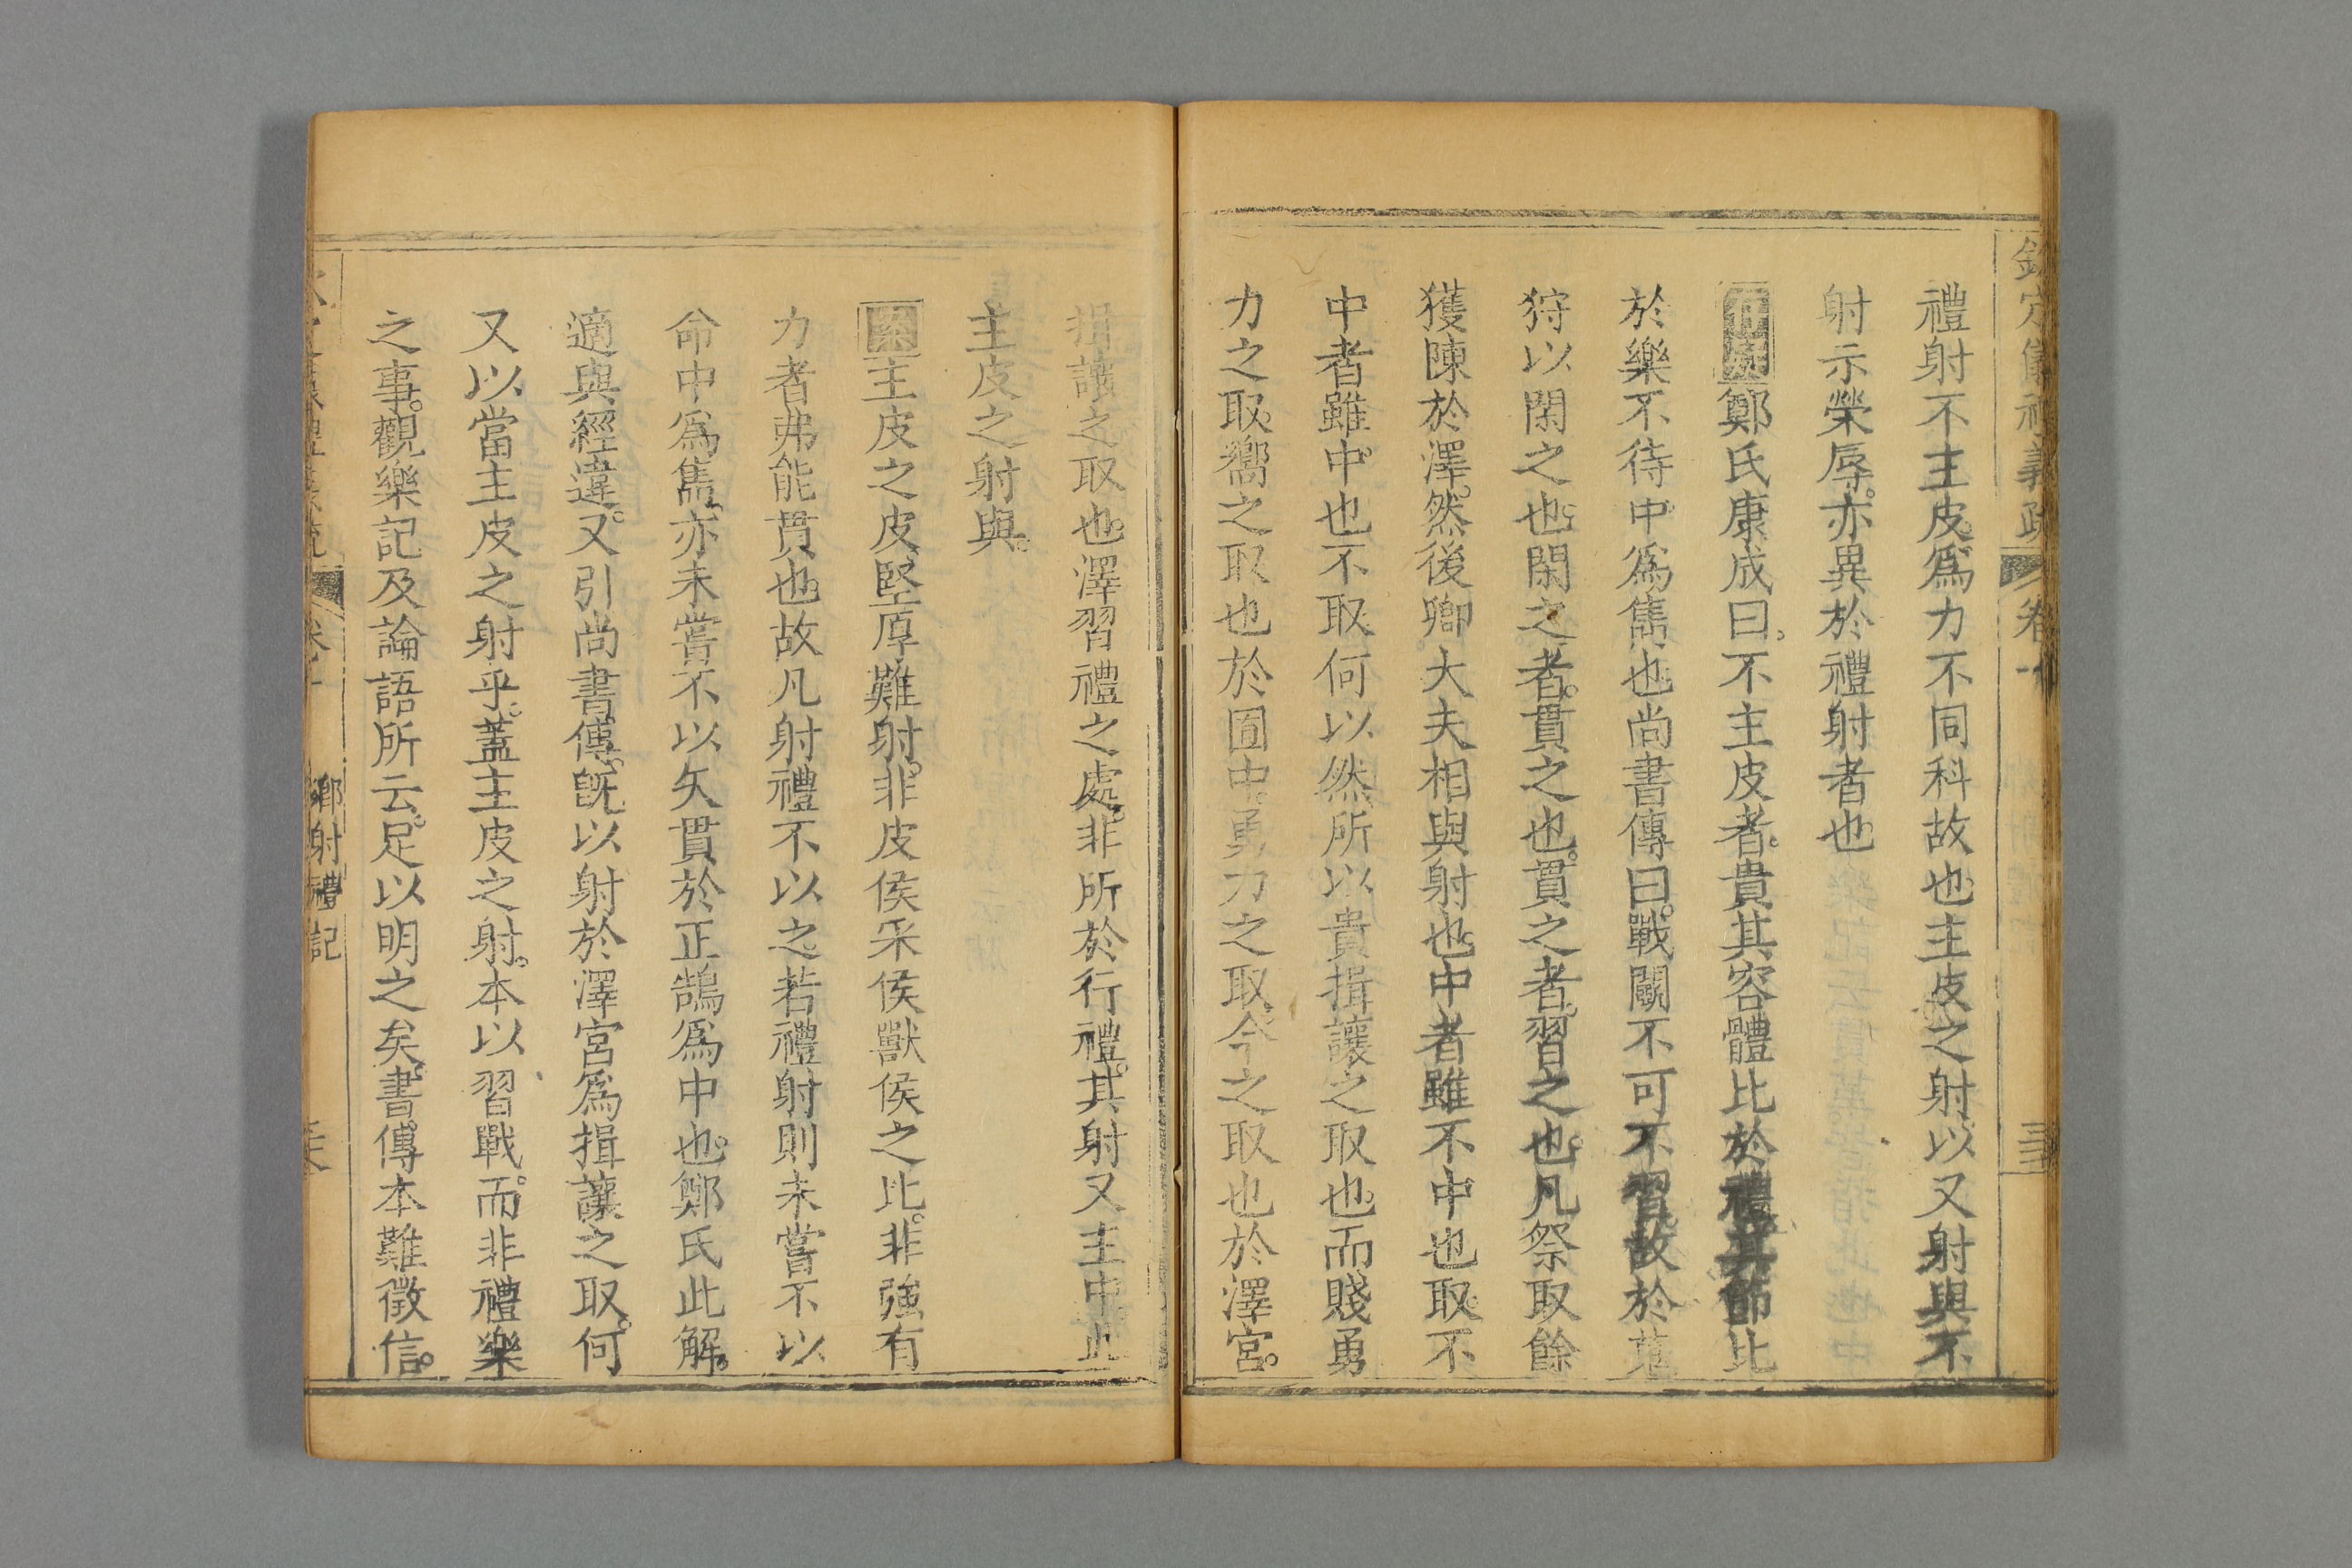 欽定儀禮義疏 卷十
禮射不主皮。爲力不同科故也。主皮之射。以又射與不
射示榮辱。亦異於禮射者也
存疑鄭氏康成曰。不主皮者。貴其容體比於禮其節比
於樂不待中爲雋也尚書傳曰。戰鬭不可不習。故於蒐
狩以閑之也。閑之者。貫之也。貫之者。習之也。凡祭取餘
獲陳於澤。然後卿大夫相與射也。中者雖不中也取。不
中者雖中。也不取。何以然。所以貴揖讓之取也。而賤勇
力之取。嚮之取也於囿中。勇力之取。今之取也於澤宮。
揖讓之取也。澤習禮之處。非所於行禮。其射又主中此
主皮之射與。
案主皮之皮。堅厚難射。非皮侯采侯獸侯之比。非強有
力者弗能貫也。故凡射禮不以之。若禮射則未嘗不以
命中爲雋。亦未嘗不以矢貫於正鵠爲中也。鄭氏此解。
適與經違。又引尚書傳。既以射於澤宮爲揖讓之取。何
又以當主皮之射乎。蓋主皮之射。本以習戰。而非禮樂
之事。觀樂記及論語所云。足以明之矣。書傳本難徵信。
鄉射禮記